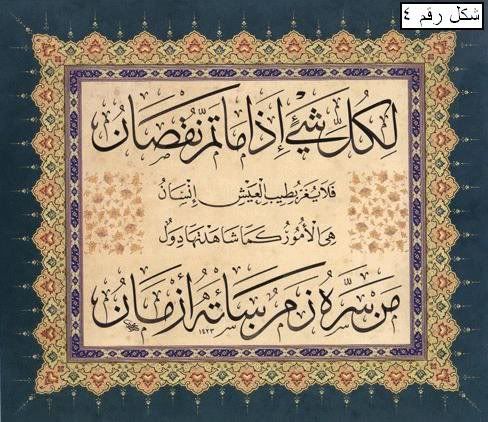 شكل رقم ٤
لِكُلِّ شَيْئٍ إِذَا مَا تَمَّ نُقْصَانُ
فَلَا يُغَرَّ بِطِيبِ الْعَيْشِ إِنْسَانُ
هِيَ الْأُمُورُ كَمَا شَاهَدْتَهَا دُوَلٌ
مَنْ سَرَّهُ زَمَنٌ سَائَتْهُ أَزْمَانُ
١٤٢٣